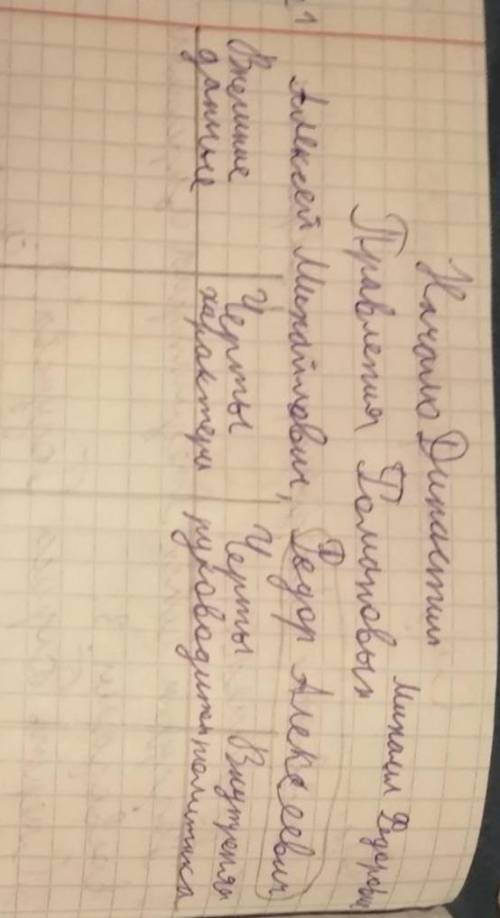 1
Начало Династии
Правления Романовых Михаил Федорович
Алексей Михайлович, Федор Алексеевич
Внешние данные Черты характера Черты руководителя Внутренняя политика